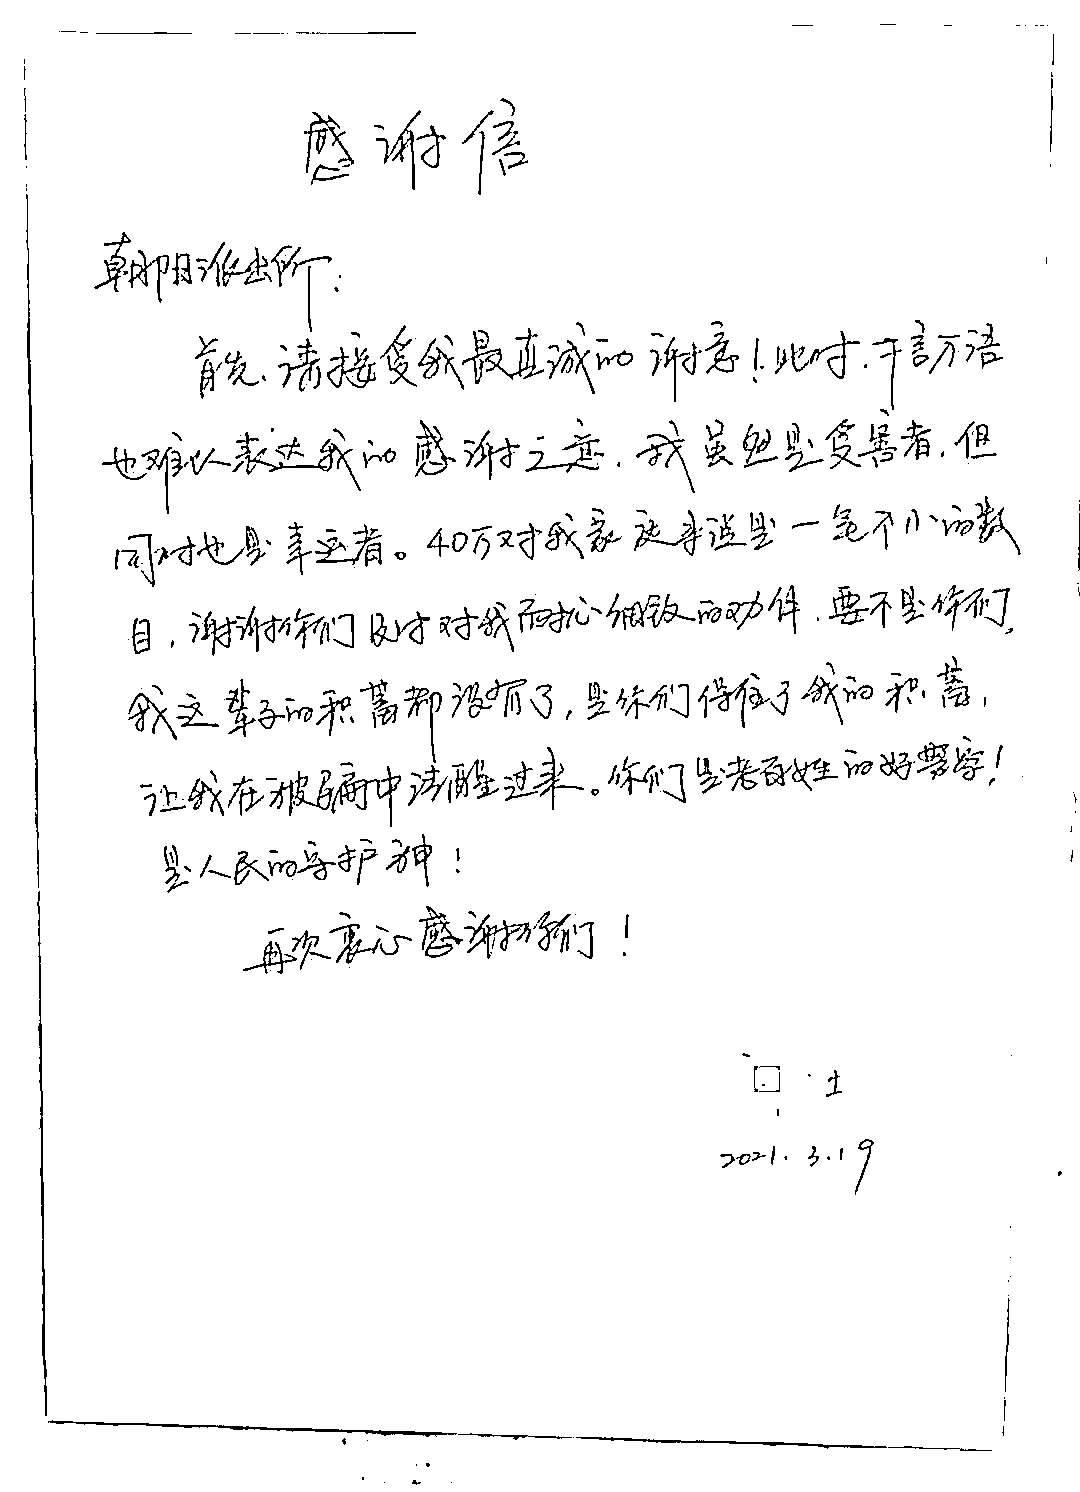 感谢信
朝阳派出所:
首先、请接受我最真诚的谢意!此时、千言万语
也难以表达我的感谢之意、我虽然是受害者、但
同时也是幸运者。40万对我家庭来说是一笔不小的数
目,谢谢你们及时对我耐心细致的劝件、要不是你们,
我这辈子的积蓄都没有了,是你们保住了我的积蓄,
让我在被骗中清醒过来。你们是老百姓的好警察!
是人民的守护神!
再次衷心感谢你们!
2021.3.19